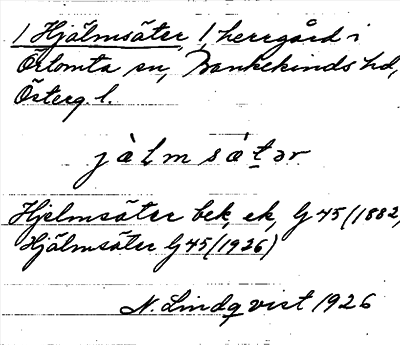 1 Hjälmsäter, 1 herrgård i
Örtomta sn, Bankekinds hd,
Österg. l.
jàlmsátər
Hjelmsäter bek, ek, G 45 (1882)
Hjälmsäter G 45 (1926)
N. Lindqvist 1926